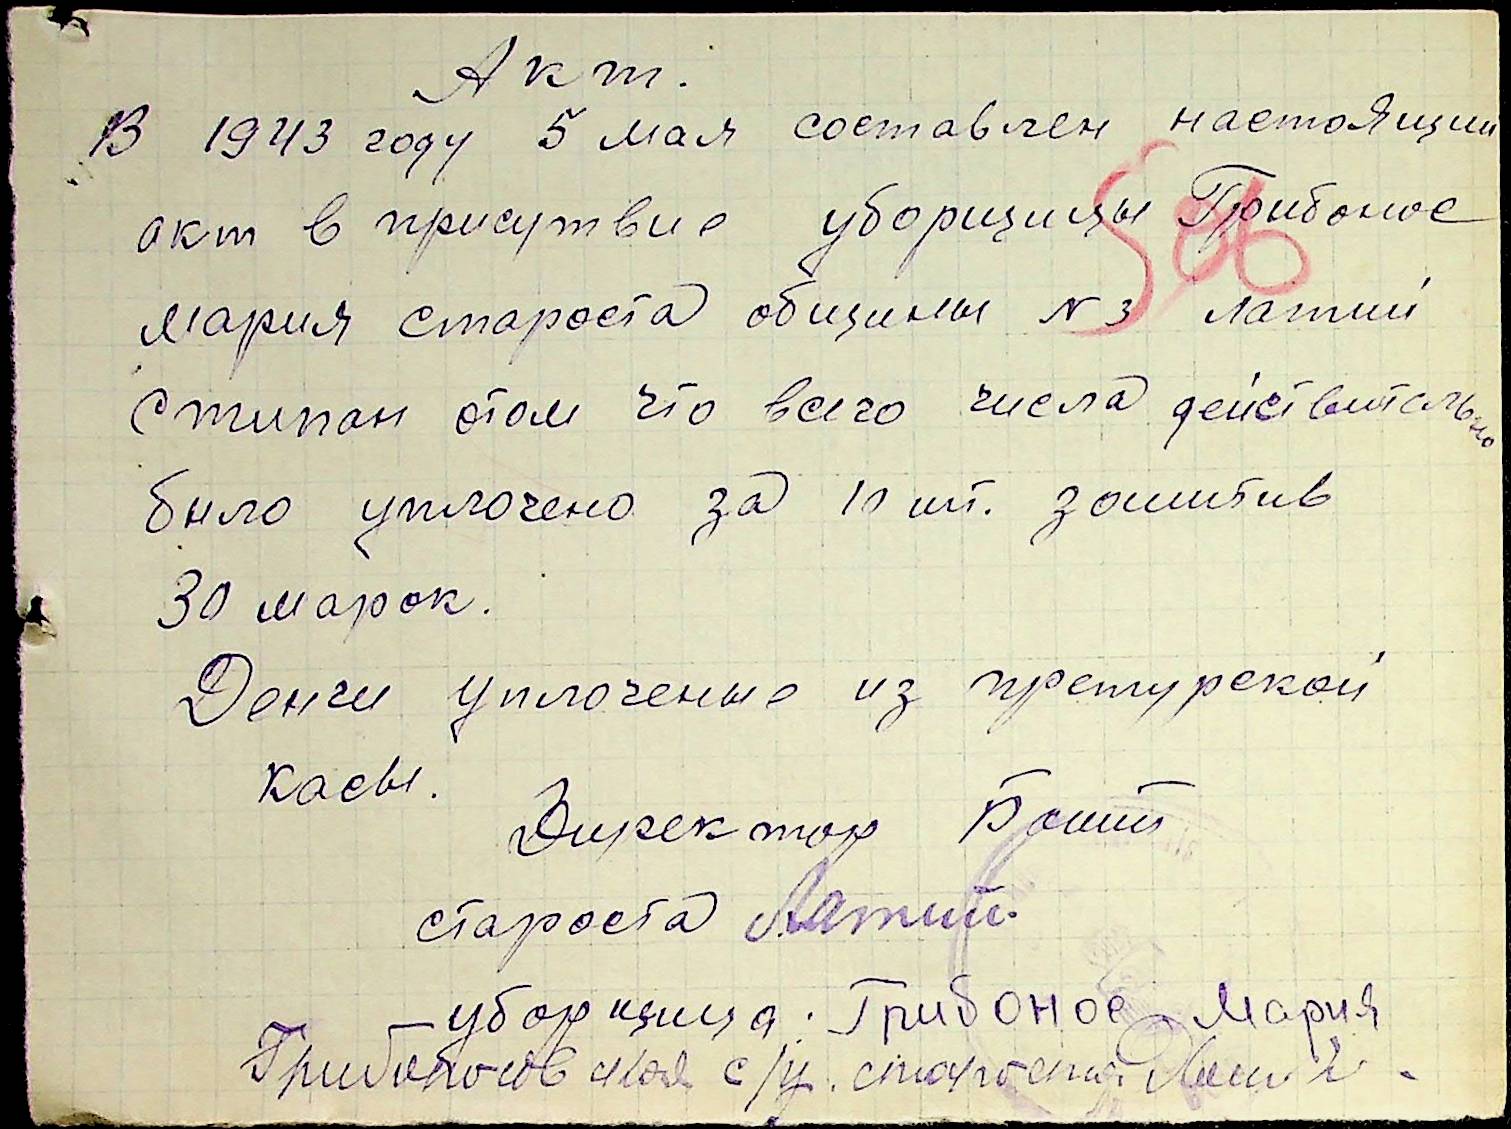 Акт.
В 1943 году 5 мая составлен настоящий
акт в присутвие уборщицы Грибонос
мария староста общины №3 латий
Стипан отом что всего числа действительно
было уплочено за 10 шт. зошитив
30 марок.
Денги уплоченые из претурской
касы.
Директор
староста Латий.
уборщица. Грибонос Мария
с/у. староста